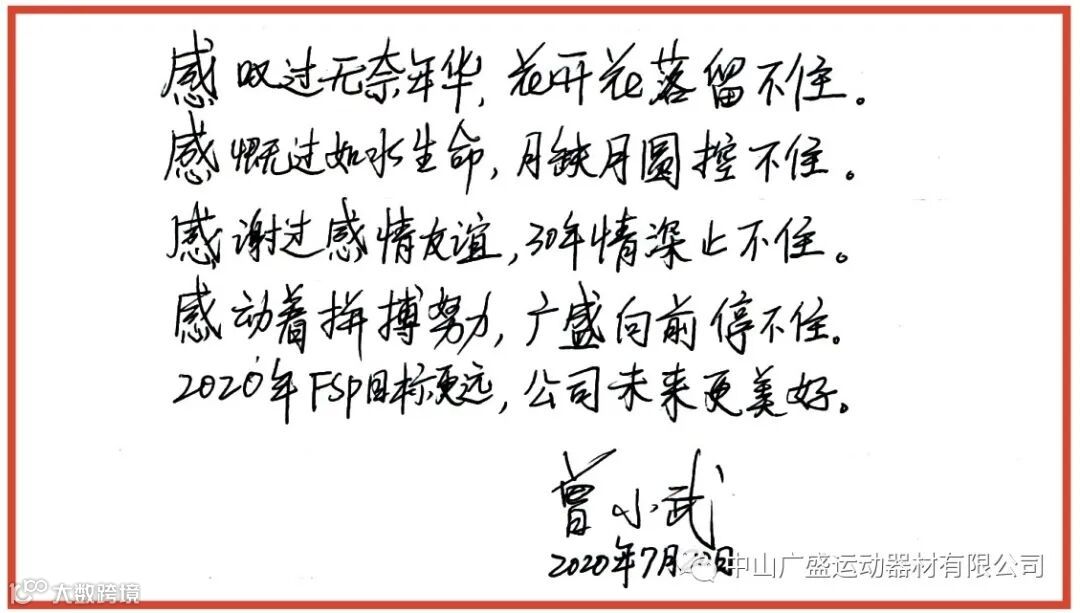 感叹过无奈年华,花开花落留不住。
感慨过如水生命,月缺月圆控不住。
感谢过感情友谊,30年情深止不住。
感动着拼搏努力,广盛向前停不住。
2020年FSP目标更远,公司未来更美好。
曾小武
2020年7月 日
中山广盛运动器材有限公司
大数跨境